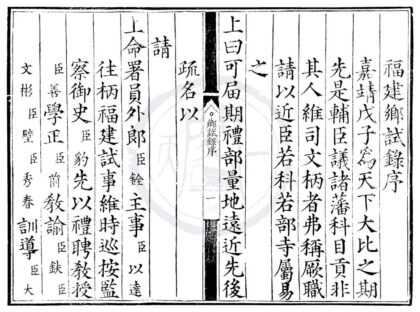 福建鄉試錄序
嘉靖戊子爲天下大比之期
先是輔臣議諸藩科目貢非
其人維司文柄者弗稱厥職
請以近臣若科若部寺屬易
之
上曰可届期禮部量地遠近先後
鄉試錄序
一
疏名以
請
上命署員外郎臣銓主事臣以遠
往柄福建試事維時巡按監
察御史臣豹先以禮聘教授
臣善學正臣前教諭臣鈇臣
文彬臣壁臣秀春訓導臣大